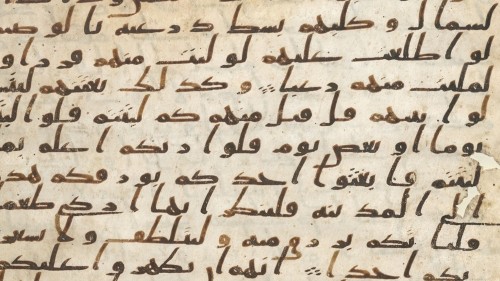 لشمال و كلبهم بسط ذرعيه بالوصيد
لو اطلعت عليهم لوليت منهم فررا و
لمليت منهم رعبا وكذلك بعثنهم ليتسا
لوا بينهم قل قيل منهم كم لبثتم قلوا لبثنا
يوما او بعض يوم قلوا ربكم اعلم بما
لبثتم فابعثوا احدكم بورقكم هذه
الى المدينه فلينظر ايها ازكى طعما
فلياتكم برزق منه وليتلطف ولا يشعرن
بكم احدا انهم ان يظهروا عليكم